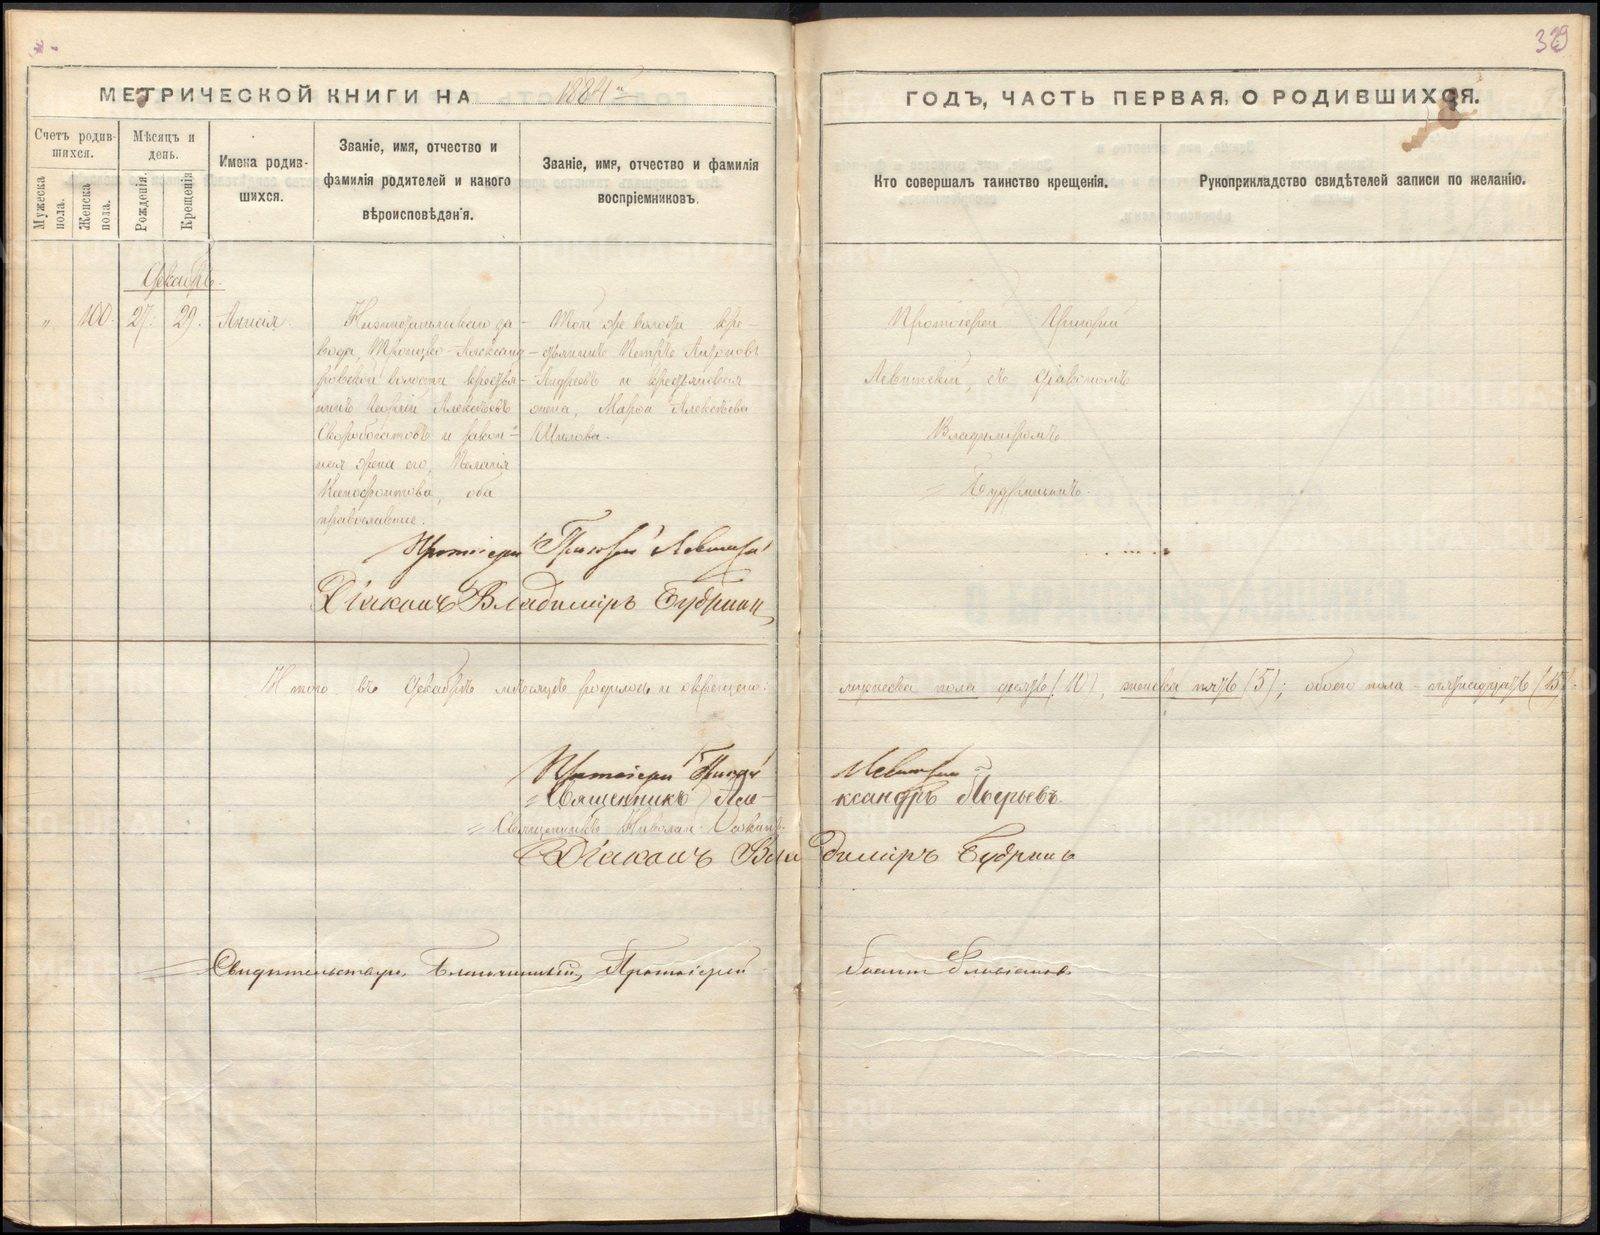 329
МЕТРИЧЕСКОЙ КНИГИ НА 1884й
ГОДЪ, ЧАСТЬ ПЕРВАЯ, О РОДИВШИХСЯ.
Счетъ родив-
шихся.
Мужеска
пола.
Женска
пола.
Мѣсяцъ и
день.
Рожденія.
Крещенія
Имена родив-
шихся.
Званіе, имя, отчество и
фамилія родителей и какого
вѣроисповѣданія.
Званіе, имя, отчество и фамилія
воспріемниковъ.
Кто совершалъ таинство крещенія.
Рукоприкладство свидѣтелей записи по желанію.
Декабрь.
" 100. 27. 29. Анисія.
за-
вода, Троицко-Александ-
ровской волости крестья-
нинъ Георгій Алексѣевъ
Скоробогатовъ и закон-
ная жена его, Пелагія
Ксенофонтова, оба
православные.
Той же волости кре-
стьянинъ Петръ Антоновъ
Андреевъ и крестьянская
жена, Марѳа Алексѣева
Шилова.
Протоіерей Григорій
Левитскій, съ діакономъ
Владиміромъ
Будринымъ.
Протоіерей Григорій Левитскій
Діаконъ Владиміръ Будринъ
Итого въ Декабрѣ мѣсяцѣ родилось и крещено:
мужеска пола десять (10), женска пять (5); обоего пола пятнадцать (15).
Протоіерей Григорій Левитскій
Священникъ Александръ
Священникъ Николай
Діаконъ Владиміръ Будринъ
Свидѣтельствую, Благочинный, Протоіерей